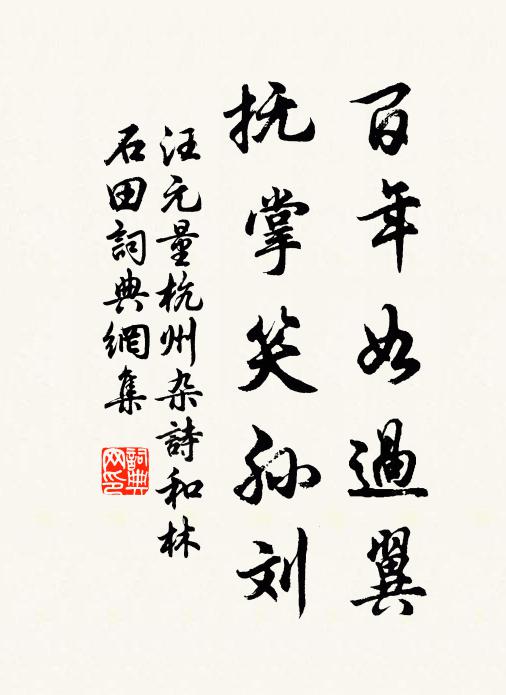 百年如過翼
抚掌笑孙刘
汪元量杭州杂詩和林
石田詞典網集
詞典网印